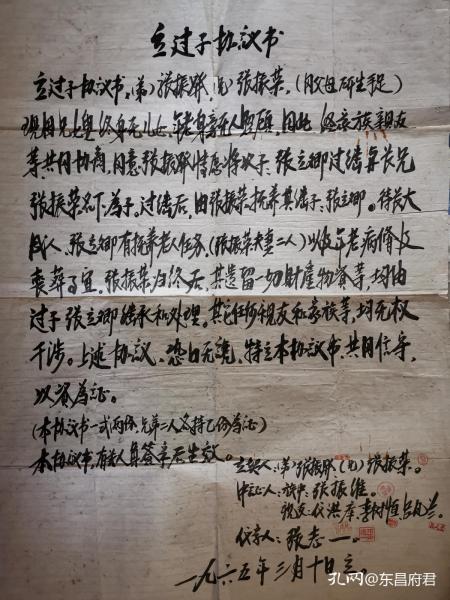 立过子协议书
立过子协议书，（弟）张振跃，（兄）张振荣，（同父母所生手足）
现因兄嫂终身无儿女，年老身亲无人照顾，因此，经家族亲友
等共同协商，同意张振跃情愿将次子：张立卿过继与长兄
张振荣名下为子。过继后，由张振荣抚养其继子：张立卿。待长大
成人，张立卿有抚养老人任务，（张振荣夫妻二人）以及年老病倩及
丧葬事宜。张振荣归终后，其遗留一切财产物资等，均由
过子张立卿继承和处理。其它任何亲友和家族等，均无权
干涉。上述协议，恐口无凭，特立本协议书，共同信守，
以资为证。
（本协议书一式两份，兄弟二人各持乙份为证）
本协议书，有本人具签字后生效。
立契人：（弟）张振跃（兄）张振荣。
中证人：族中：张振维。
亲友：仪洪奉，李树恒
代字人：张志一。
一九六五年三月十日立。
孔网@东昌府君